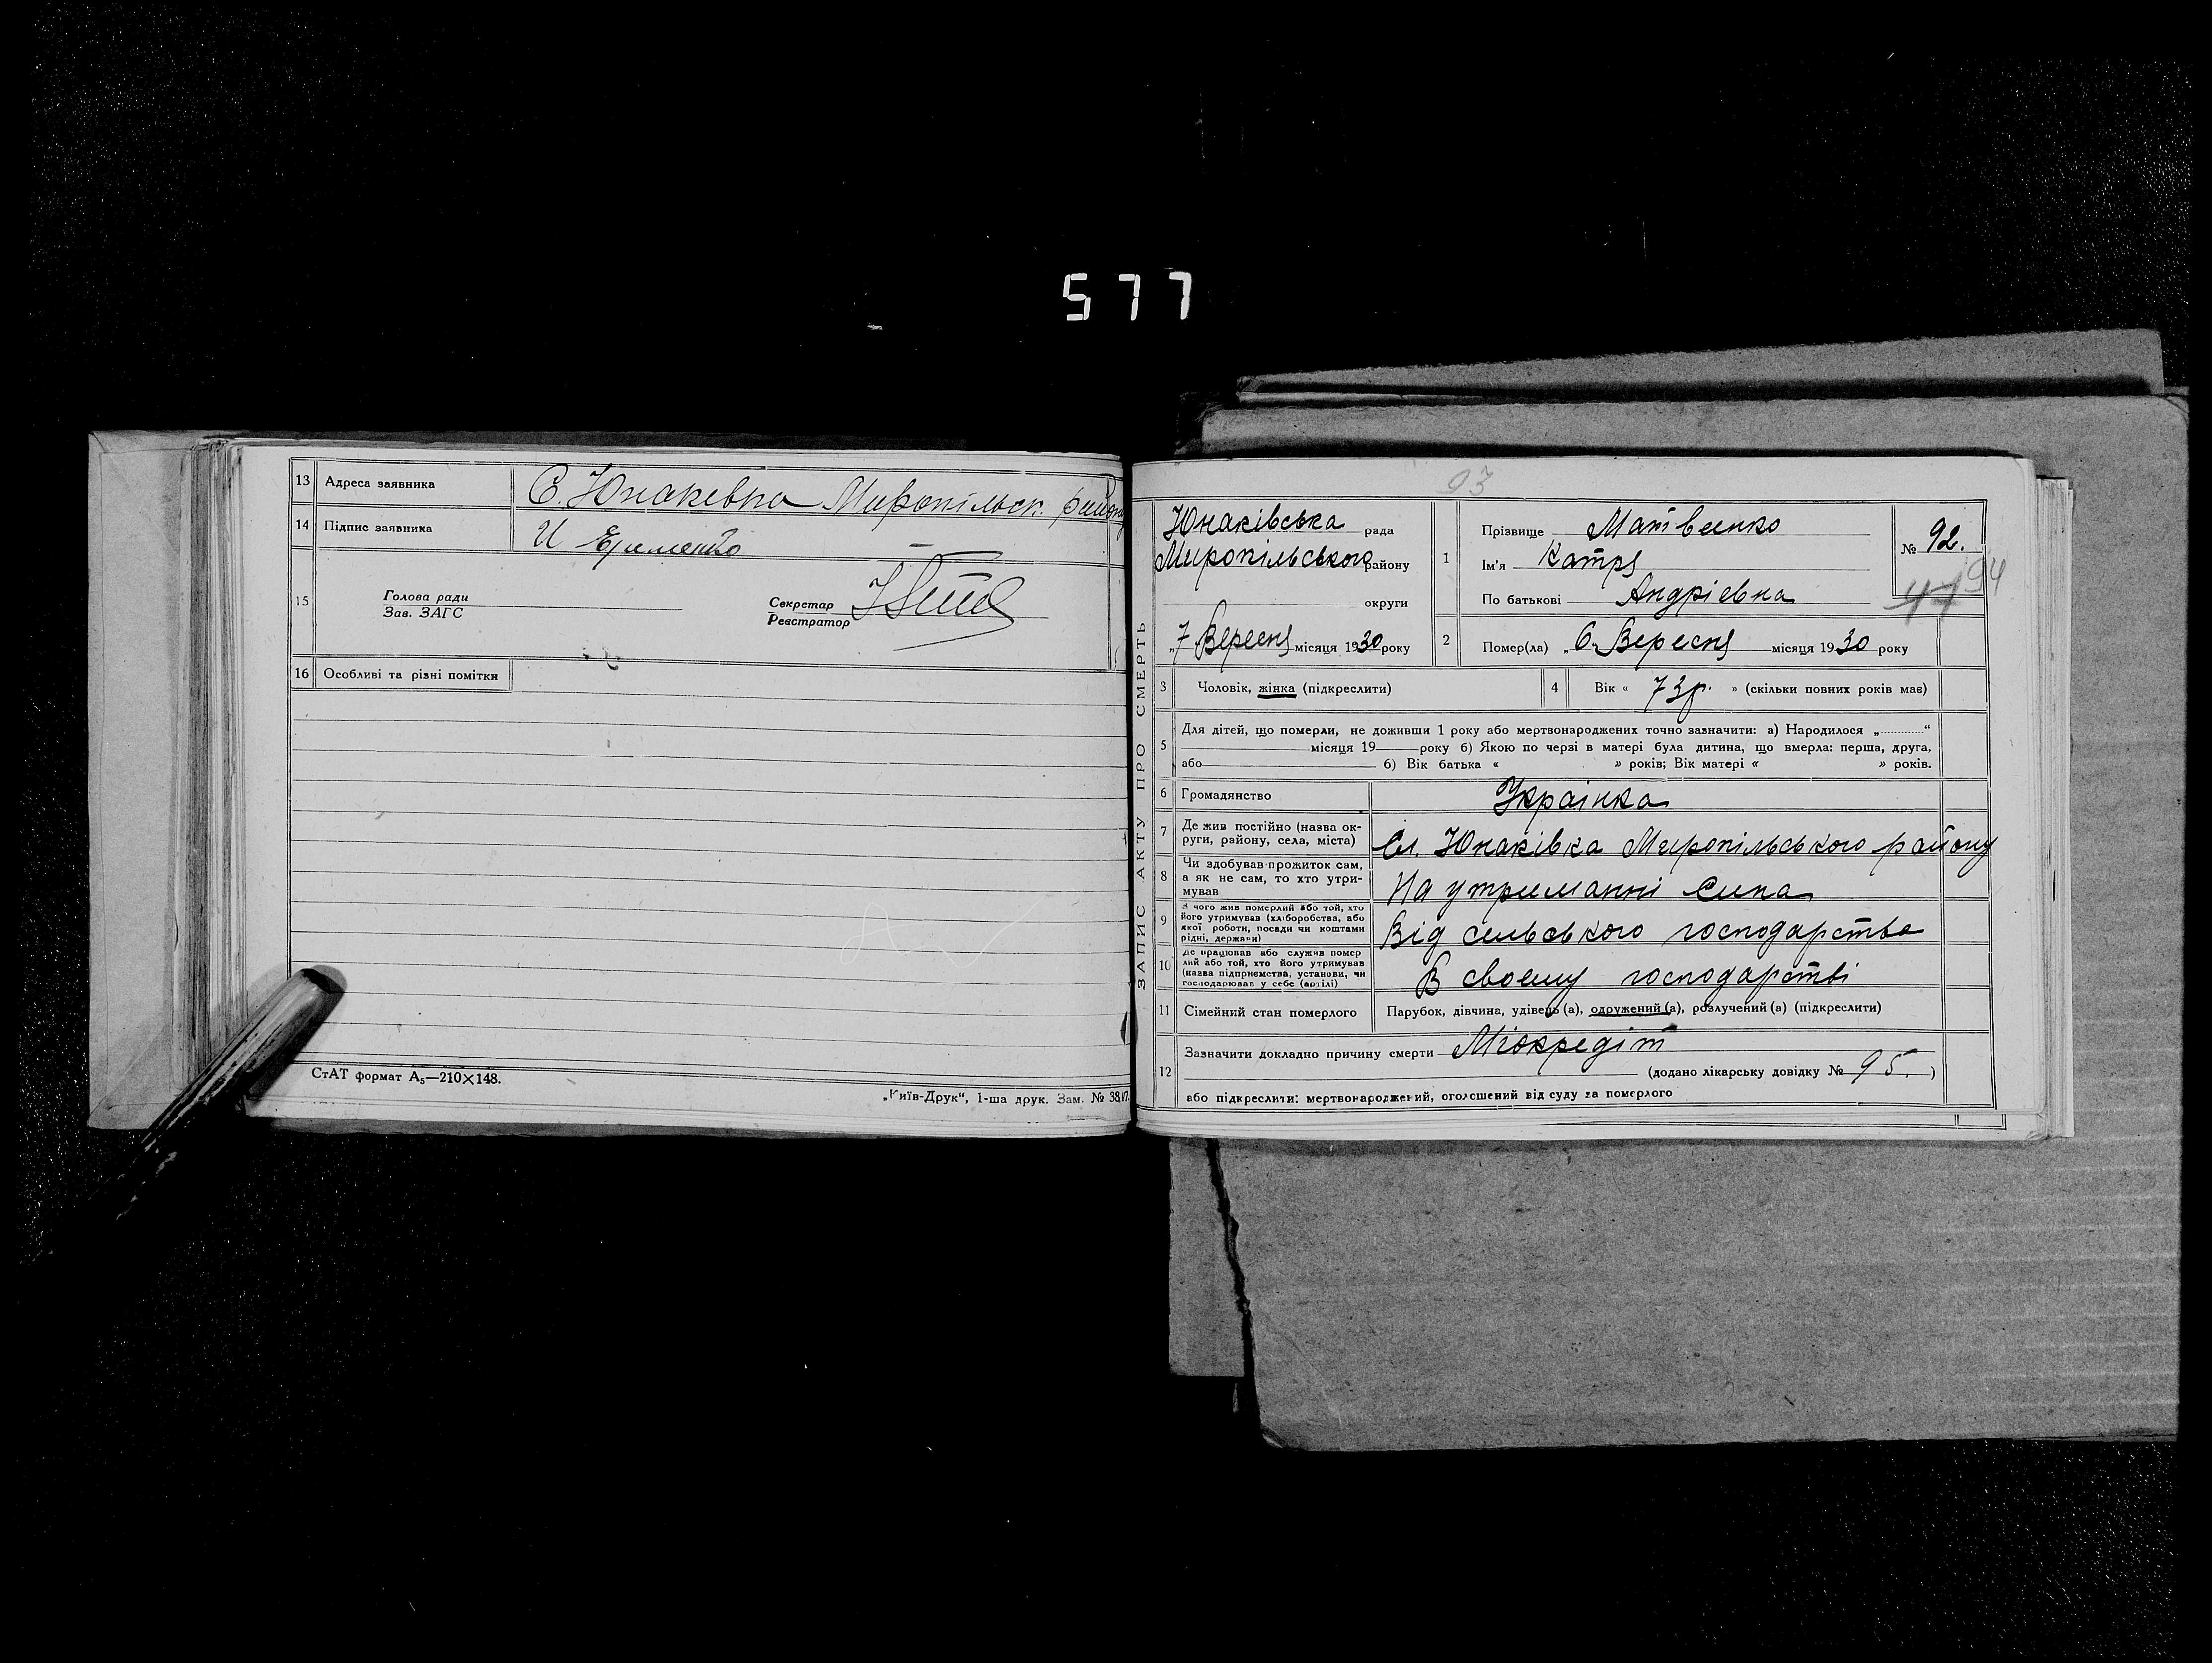 577
13 Адреса заявника С. Юнакевка Миропільск. району
14 Підпис заявника И Еременко
15 Голова ради
Зав. ЗАГС
Секретар
Реєстратор
16 Особливі та різні помітки
СтАТ формат А5—210×148.
„Київ-Друк“, 1-ша друк. Зам. №
93
ЗАПИС АКТУ ПРО СМЕРТЬ
Юнаківська рада
Миропільського району
округи
„7 Вересня місяця 1930 року
1 Прізвище Матвеенко
Ім'я Катря
По батькові Андріевна
№ 92.
94
2 Помер(ла) „6 Вересня місяця 1930 року
3 Чоловік, жінка (підкреслити)
4 Вік « 73 р. » (скільки повних років має)
5 Для дітей, що померли, не доживши 1 року або мертвонароджених точно зазначити: а) Народилося „ “
місяця 19 року б) Якою по черзі в матері була дитина, що вмерла: перша, друга,
або б) Вік батька « » років; Вік матері « » років.
6 Громадянство Украінка
7 Де жив постійно (назва ок-
руги, району, села, міста) Сл. Юнаківка Миропільського району
8 Чи здобував прожиток сам,
а як не сам, то хто утри-
мував На утриманні сина
9 З чого жив померлий або той, хто
його утримував (хліборобства, або
якої роботи, посади чи коштами
рідні, держави) Від сельського господарства
10 Де працював або служив помер
лий або той, хто його утримував
(назва підприємства, установи, чи
господарював у себе (артілі) В своему господарстві
11 Сімейний стан померлого Парубок, дівчина, удівець (а), одружений (а), розлучений (а) (підкреслити)
12 Зазначити докладно причину смерти Міокредіт
(додано лікарську довідку № 95. )
або підкреслити: мертвонароджений, оголошений від суду за померлого